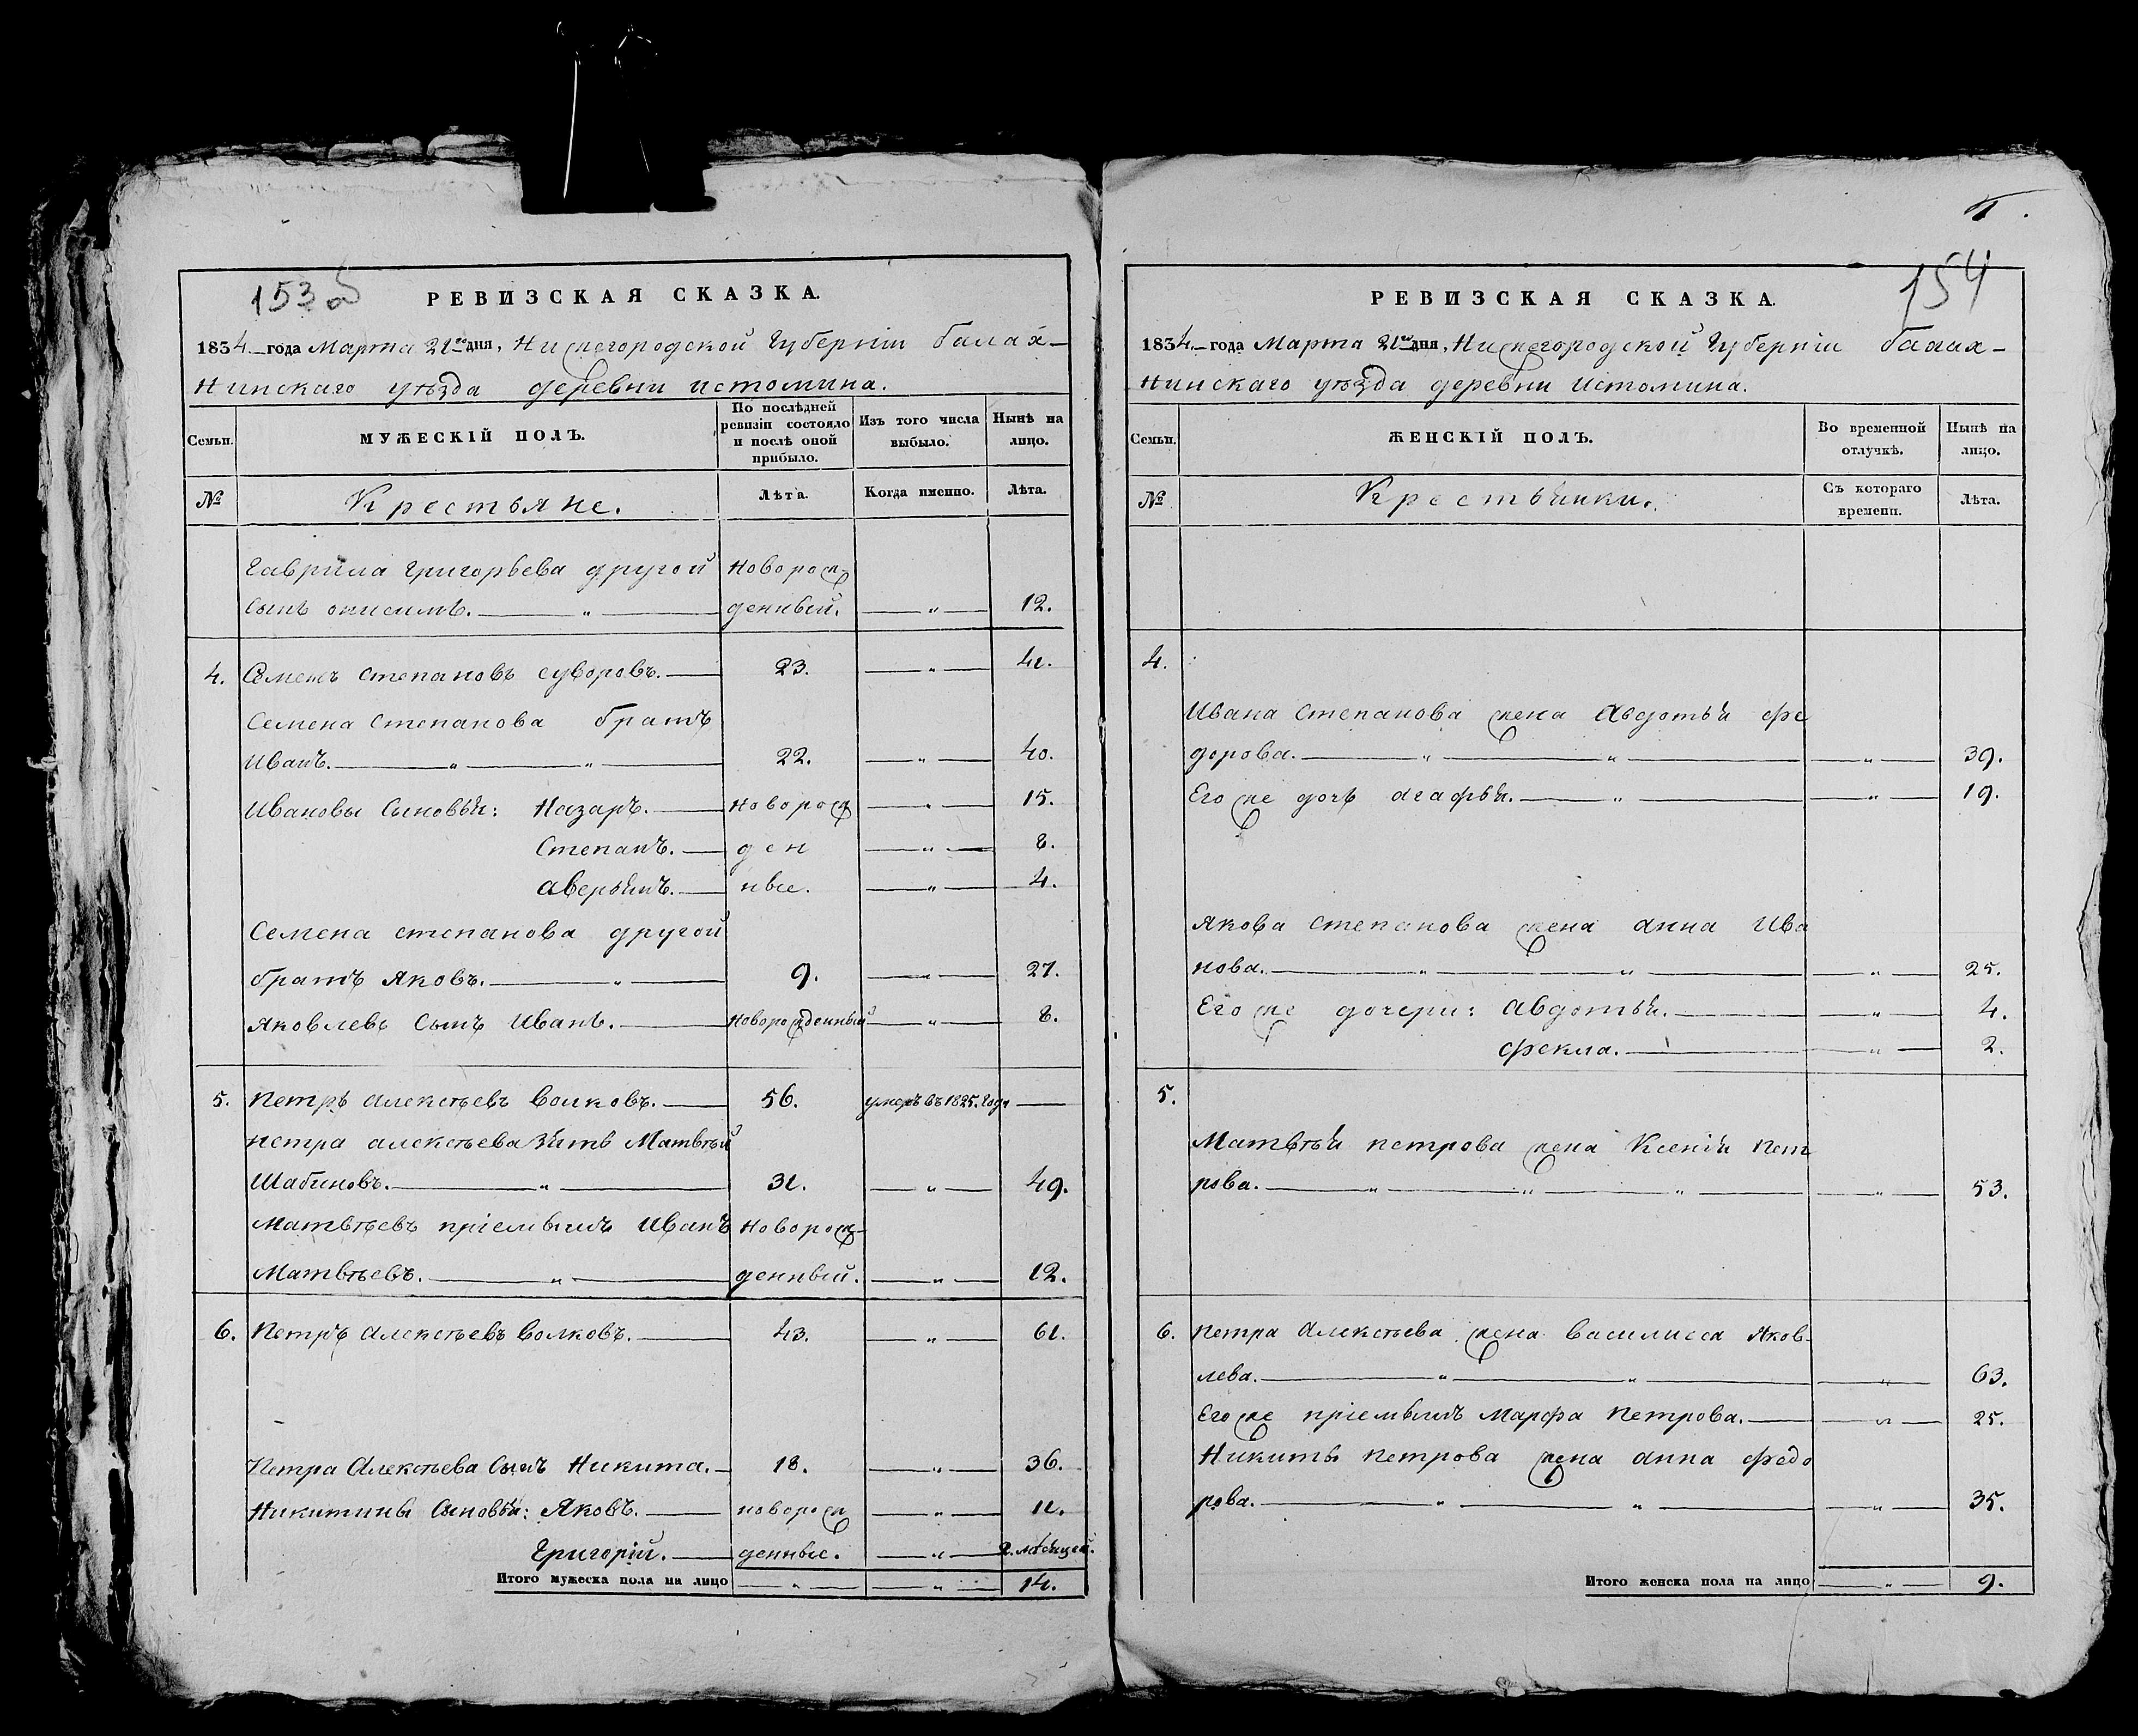 153 об
РЕВИЗСКАЯ СКАЗКА.
1834 года Марта 21го дня, Нижегородской Губерніи балах-
Нинскаго уѣзда деревни истомина.
Семьи.
МУЖЕСКІЙ ПОЛЪ.
По послѣдней
ревизіи состояло
и послѣ оной
прибыло.
Изъ того числа
выбыло.
Нынѣ на
лицо.
№
Крестьяне.
Лѣта.
Когда именно.
Лѣта.
Гаврила григорьева другой Новорож-
сынъ онисимъ. — " — денный. — " — 12.
4. Семенъ степановъ суворовъ. — 23. — " — 41.
Семена Степанова братъ
Иванъ. — " — " — 22. — " — 40.
Ивановы Сыновья: Назаръ. — новорож — " — 15.
Степанъ. — ден — " — 8.
аверьянъ. — ные. — " — 4.
Семена степанова другой
братъ Яковъ. — " — 9. — " — 27.
Яковлевъ Сынъ Иванъ. — новорожденный — " — 8.
5. Петръ алексѣевъ волковъ. — 56. умеръ въ 1825. Году —
петра алексѣева зять Матвѣй
Шабиновъ. — " — 31. — " — 49.
Матвѣевъ пріемышъ Иванъ Новорож-
Матвѣевъ. — " — денный. — " — 12.
6. Петръ алексѣевъ волковъ. — 43. " 61.
Петра Алексѣева Сынъ Никита. — 18. — " — 36.
Никитины Сыновья: Яковъ. — новорож — " — 11.
Григорій. — денные. — " — 2. мѣсяцей.
Итого мужеска пола на лицо — " — — " — 14.
154
РЕВИЗСКАЯ СКАЗКА.
1834 года Марта 21го дня, Нижегородской Губерніи балах-
Нинскаго уѣзда деревни Истомина.
Семьи.
ЖЕНСКІЙ ПОЛЪ.
Во временной
отлучкѣ.
Нынѣ на
лицо.
№
Крестьянки.
Съ котораго
времени.
Лѣта.
4.
Ивана степанова жена Авдотья фе
дорова. — " — " — — " — 39.
Его же дочь агафья. — " — — " — 19.
Якова степанова жена анна Ива
нова. — " — " — — " — 25.
Его же дочери: Авдотья. — — " — 4.
фекла. — — " — 2.
5.
Матвѣя петрова жена Ксенія пет
рова. — " — " — " — — " — 53.
6. Петра Алексѣева жена василиса Яков-
лева. — " — " — — " — 63.
Его же пріемышъ Марфа Петрова. — — " — 25.
Никиты петрова жена анна федо
рова. — " — " — — " — 35.
Итого женска пола на лицо — " — 9.